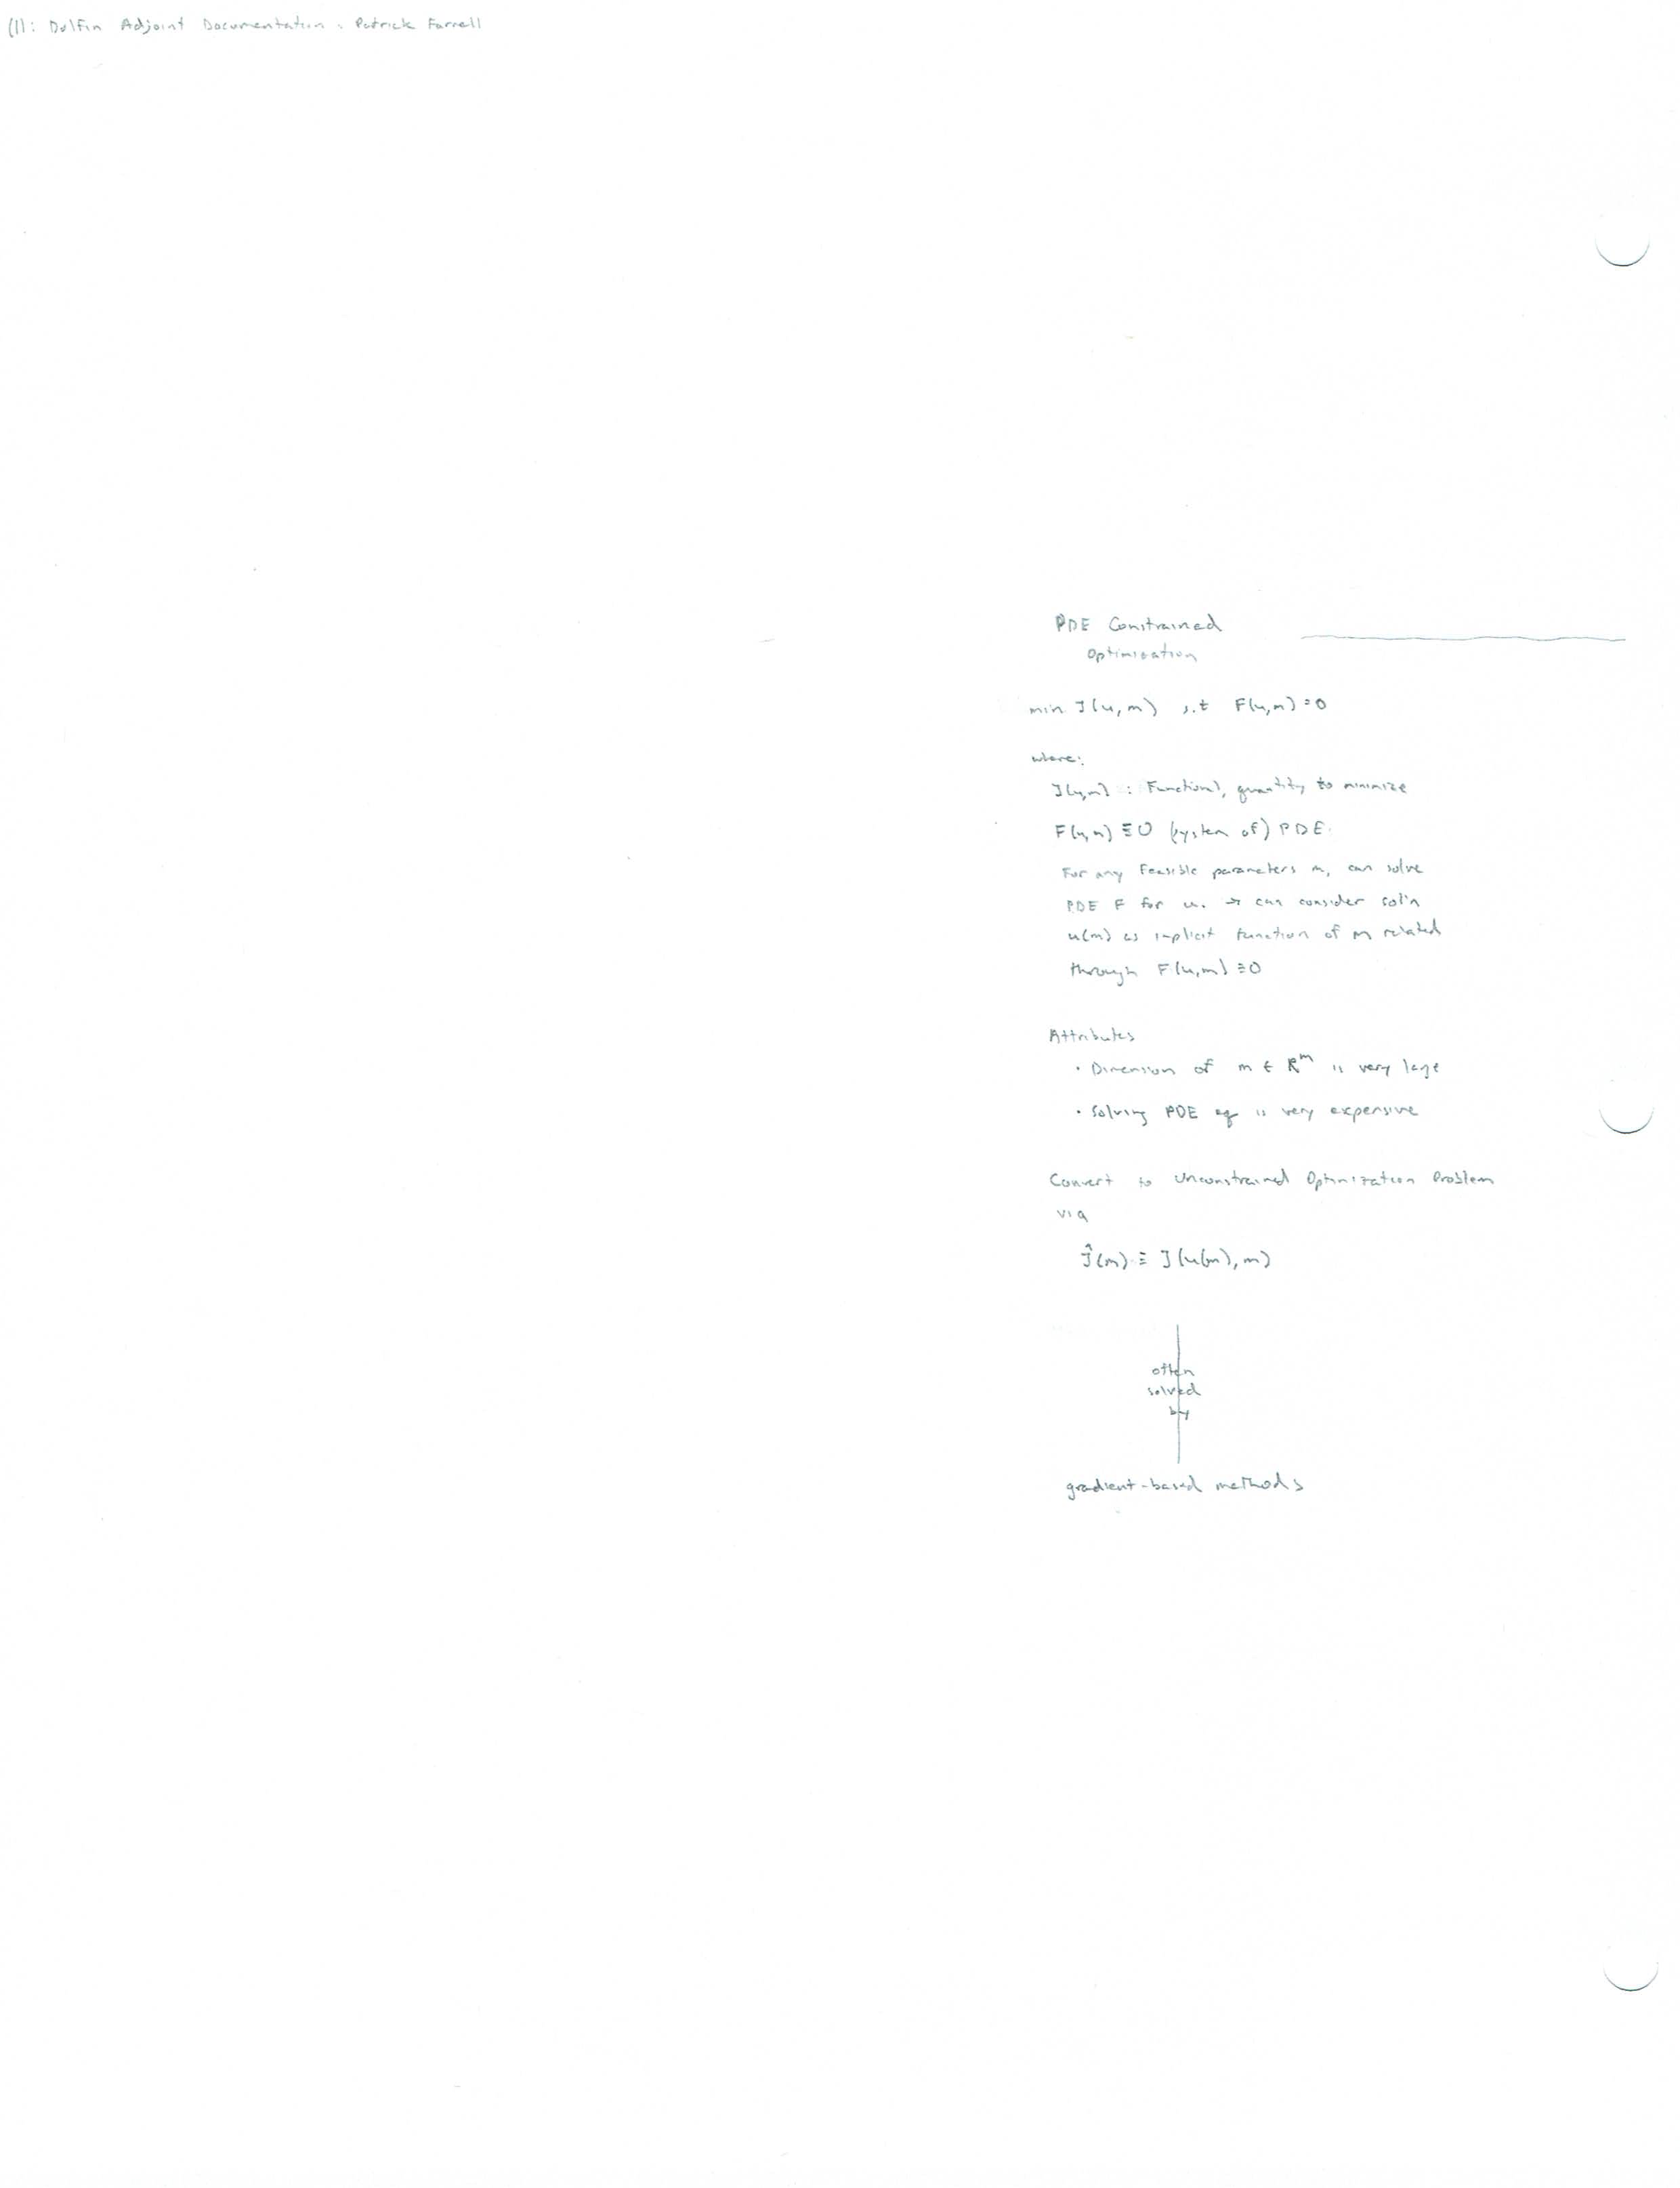 (1): Dolfin Adjoint Documentation, Patrick Farrell
PDE Constrained
Optimization
min J(u,m) s.t F(u,m)=0
where:
J(u,m) : Functional, quantity to minimize
F(u,m) ≡ 0 (system of) PDE.
For any feasible parameters m, can solve
PDE F for u. → can consider sol'n
u(m) as implicit function of m related
through F(u,m) ≡ 0
Attributes
• Dimension of m ∈ ℝᵐ is very large
• Solving PDE eq is very expensive
Convert to Unconstrained Optimization Problem
via
Ĵ(m) ≡ J(u(m), m)
often
solved
by
gradient-based methods